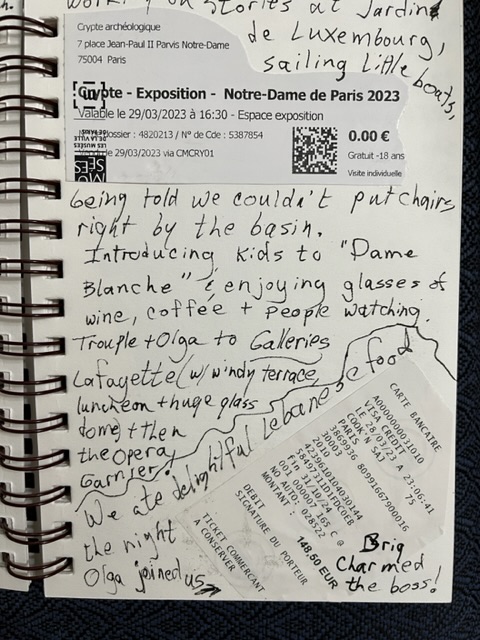 working on stories at Jardin
de Luxembourg,
sailing little boats,
Crypte archéologique
7 place Jean-Paul II Parvis Notre-Dame
75004 Paris
Crypte - Exposition - Notre-Dame de Paris 2023
Valable le 29/03/2023 à 16:30 - Espace exposition
dossier : 4820213 / N° de Cde : 5387854
29/03/2023 via CMCRY01
0.00 €
Gratuit -18 ans
Visite individuelle
LES MUSÉES
DE LA VILLE
DE PARIS
being told we couldn't put chairs
right by the basin.
Introducing kids to "Dame
Blanche" & enjoying glasses of
wine, coffee + people watching.
Trouple + Olga to Galleries
Lafayette (w/ windy terrace,
luncheon + huge glass
dome) + then
the Opera
Garnier!
We ate delightful Lebanese food
the night
Olga joined us
CARTE BANCAIRE
A0000000031010
VISA CREDIT
LE 28/03/23 A 23:06:41
COOK'N SAJ
PARIS 75
3869936 80991667900016
30003
2010
4239610104030144
5849731ID1FDC0EB
Fin 31/10/24
001 000007 165 C @
NO AUTO: 028522
MONTANT
148,50 EUR
DEBIT
SIGNATURE DU PORTEUR
TICKET COMMERCANT
A CONSERVER
Brig
charmed
the boss!